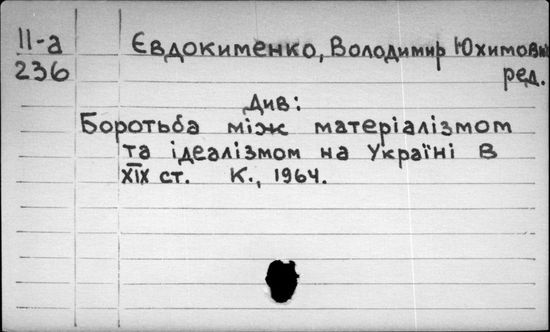 II-а Євдокименко, Володимир Юхимович
236 ред.
Див:
Боротьба між матеріалізмом
та ідеалізмом на Україні в
XIX ст. К., 1964.